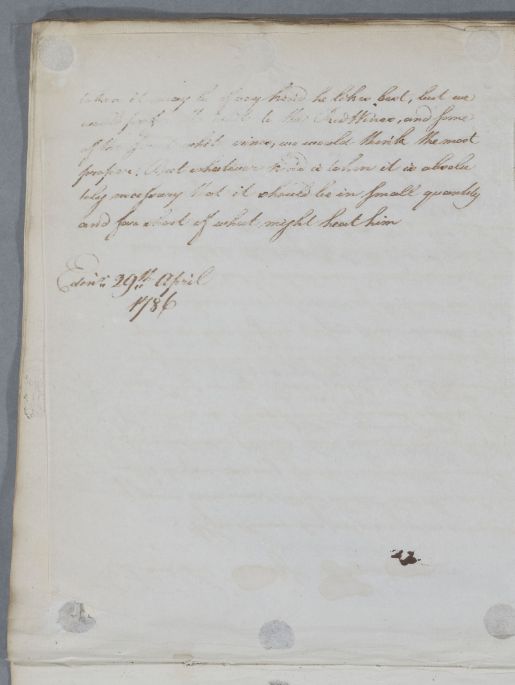 taken it may be of any kind he likes best, but we
would prefer the to the Red Wines, and some
of the white wines, we would think the most
proper. But whatever kind is taken it is absolu
tely necessary that it should be in small quantity
and far short of what might heat him
Edinr. 29th April
1786